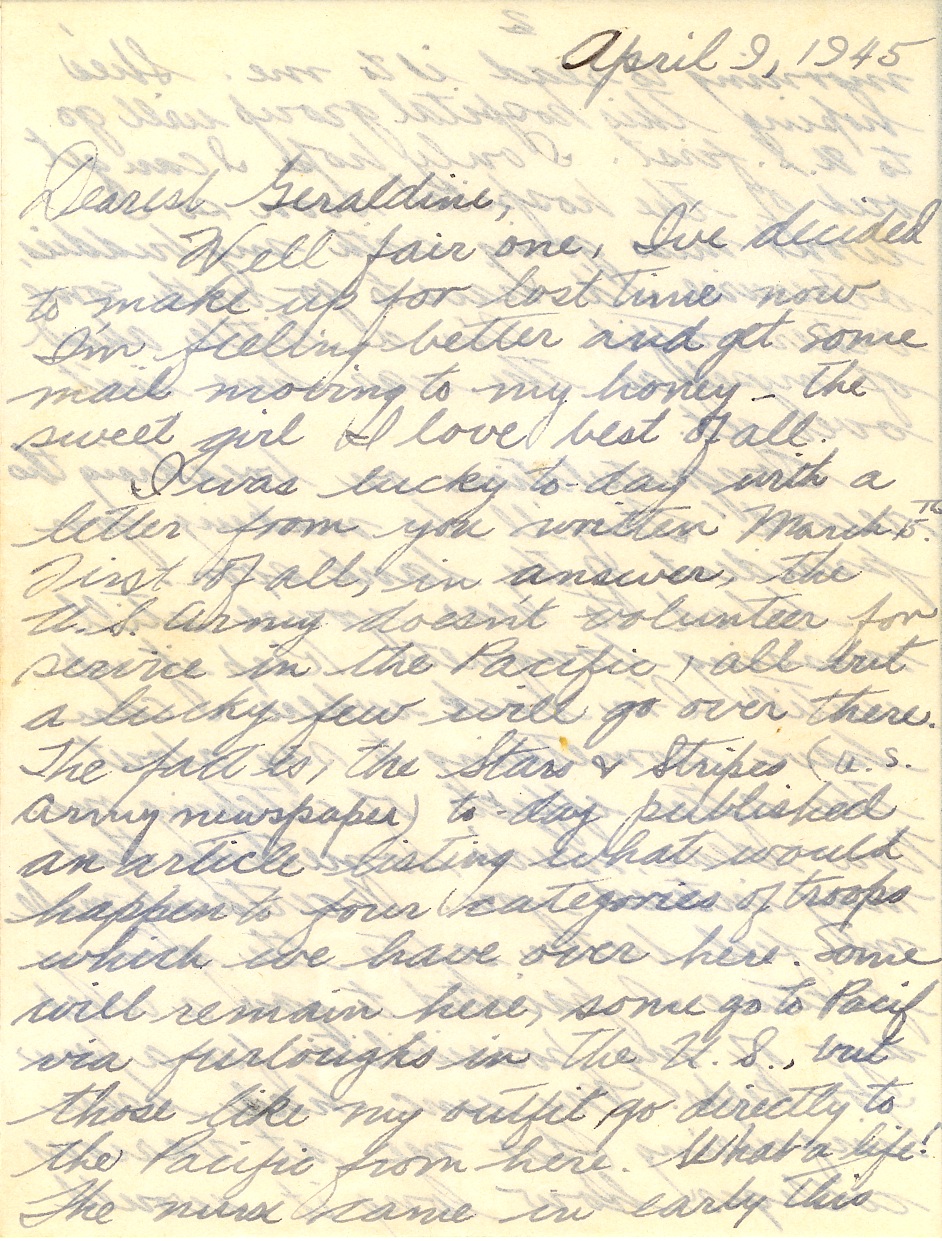 April 9, 1945
Dearest Geraldine,
Well fair one, I've decided
to make up for lost time now
I'm feeling better and get some
mail moving to my honey – the
sweet girl I love best of all.
I was lucky to-day with a
letter from you written March 15.TH
First of all, in answer, the
U.S. Army doesn't volunteer for
service in the Pacific, all but
a lucky few will go over there.
The fact is, the Stars & Stripes (U.S.
Army newspaper) to-day published
an article listing what would
happen to four categories of troops
which we have over here. Some
will remain here, some go to Pacif
via furloughs in the U.S., but
those like my outfit, go directly to
the Pacific from here. What a life!
The nurse came in early this